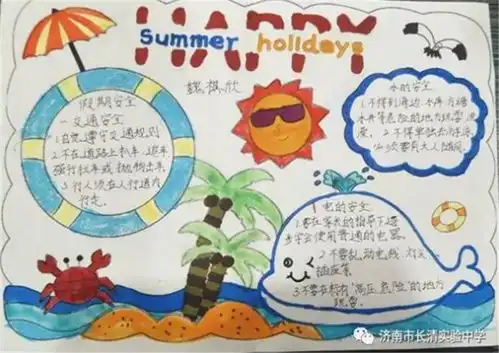 HAPPY
Summer holidays
假期安全
一.交通安全
1.自觉遵守交通规则
2.不在道路上扒车、追车
强行拦车或抛物击车
3.行人须在人行道内
行走
水的安全
1.不得到河边、水库、方塘
水井等危险的地方玩耍
2.不得单独去
必须要有大人陪同
电的安全
1.要在家长的指导下逐
步学会使用普通的电器
2.不要乱动电线、灯头
插座等
3.不要在标有"高压危险"的地方
玩耍
济南市长清实验中学